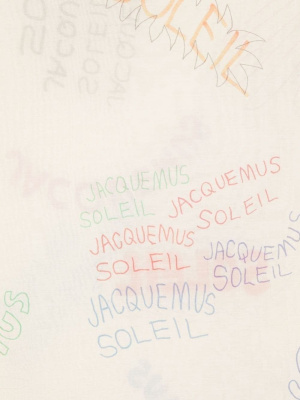 SOLEIL
JACQU
SOLEIL
JACQUEMUS
SOLEIL
JACQUEMUS
SOLEIL
JACQUEMUS
SOLEIL
JACQUEMUS
SOLEIL
JACQUEMUS
SOLEIL
US